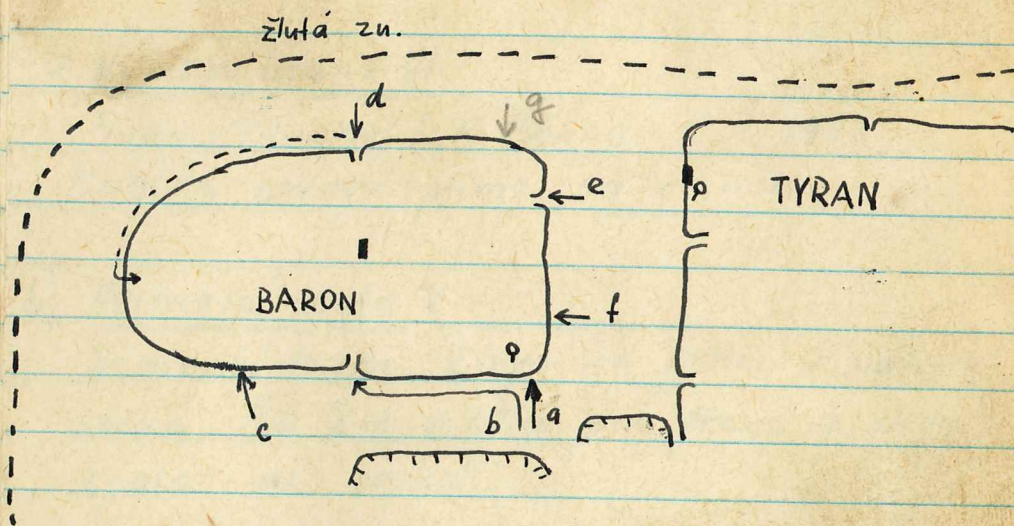 žlutá zn.
d
g
e
TYRAN
BARON
f
b
a
c